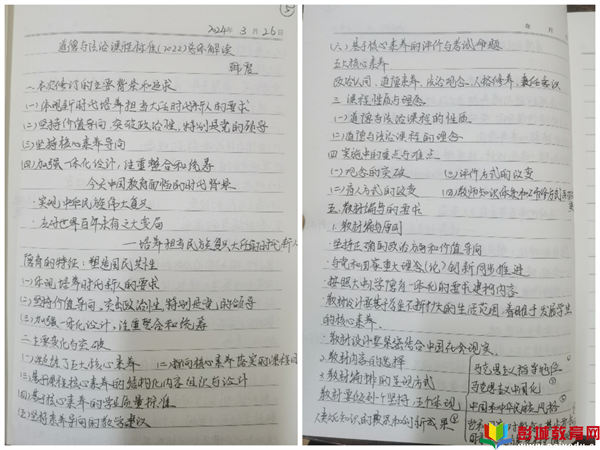 2024年 3月 26日
道德与法治课程标准(2022)总体解读
韩震
一、本次修订的主要背景和要求
(一)体现新时代培养担当大任时代新人的要求
(二)坚持价值导向,突破政治性,特别是党的领导
(三)坚持核心素养导向
(四)加强一体化设计,注重整合和统筹
今天中国教育面临的时代背景
·实现中华民族伟大复兴
·应对世界百年未有之大变局
——培养担当民族复兴大任的时代新人
隐有的特征:塑造国民共性
(一)体现培养时代新人的要求
(二)坚持价值导向,突出政治性,特别是党的领导
(三)加强一体化设计,注重整合和统筹
二、主要变化与突破
(一)凝练了五大核心素养 (二)指向核心素养落实的课程目
(三)基于课程核心素养的结构化内容组织与设计
(四)基于核心素养的学业质量标准
(五)坚持素养导向的教学建议
年 月
(六)基于核心素养的评价与考试命题
五大核心素养
政治认同、道德素养、法治观念、人格修养、责任意识
三、课程性质与理念
(一)道德与法治课程的性质
(二)道德与法治课程的理念
四、实施中的重点与难点
(一)观念的突破 (三)评价方式的改变
(二)育人方式的改变 (四)教师知识体系和工作方式
五、教材编写的要求
1.教材编写原则
·坚持正确的政治方向和价值导向
·与党和国家重大理念(论)创新同步推进
·按照大中小学有一体化的要求建构内容
·教材设计要基于学生不断扩大的生活范围,着眼于发展学生
的核心素养.
·教材设计要紧密结合中国社会现实.
2.教材内容的选择
3.教材编排的呈现方式
教材要做到个坚持,五个体现
人类知识的 和创新成果
马克思主义指导地位
马克思主义中国化
中国和中华民族风格
彭城教育网